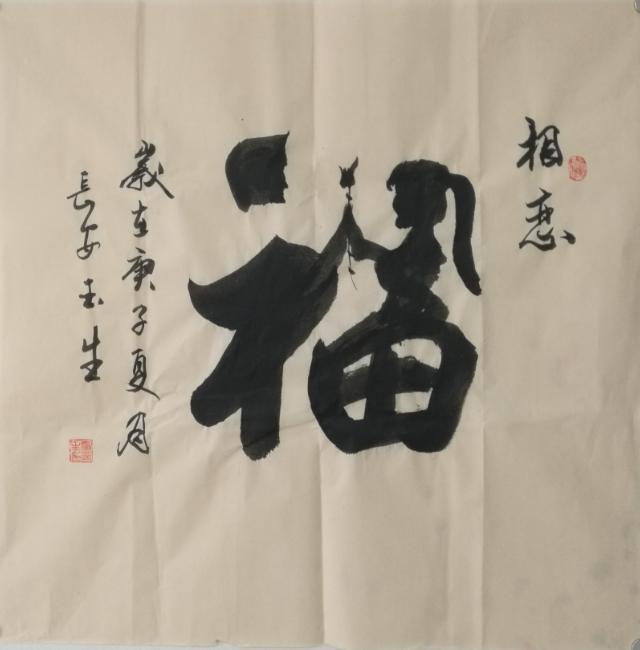 相恋
福
岁在庚子夏月
長安玉生